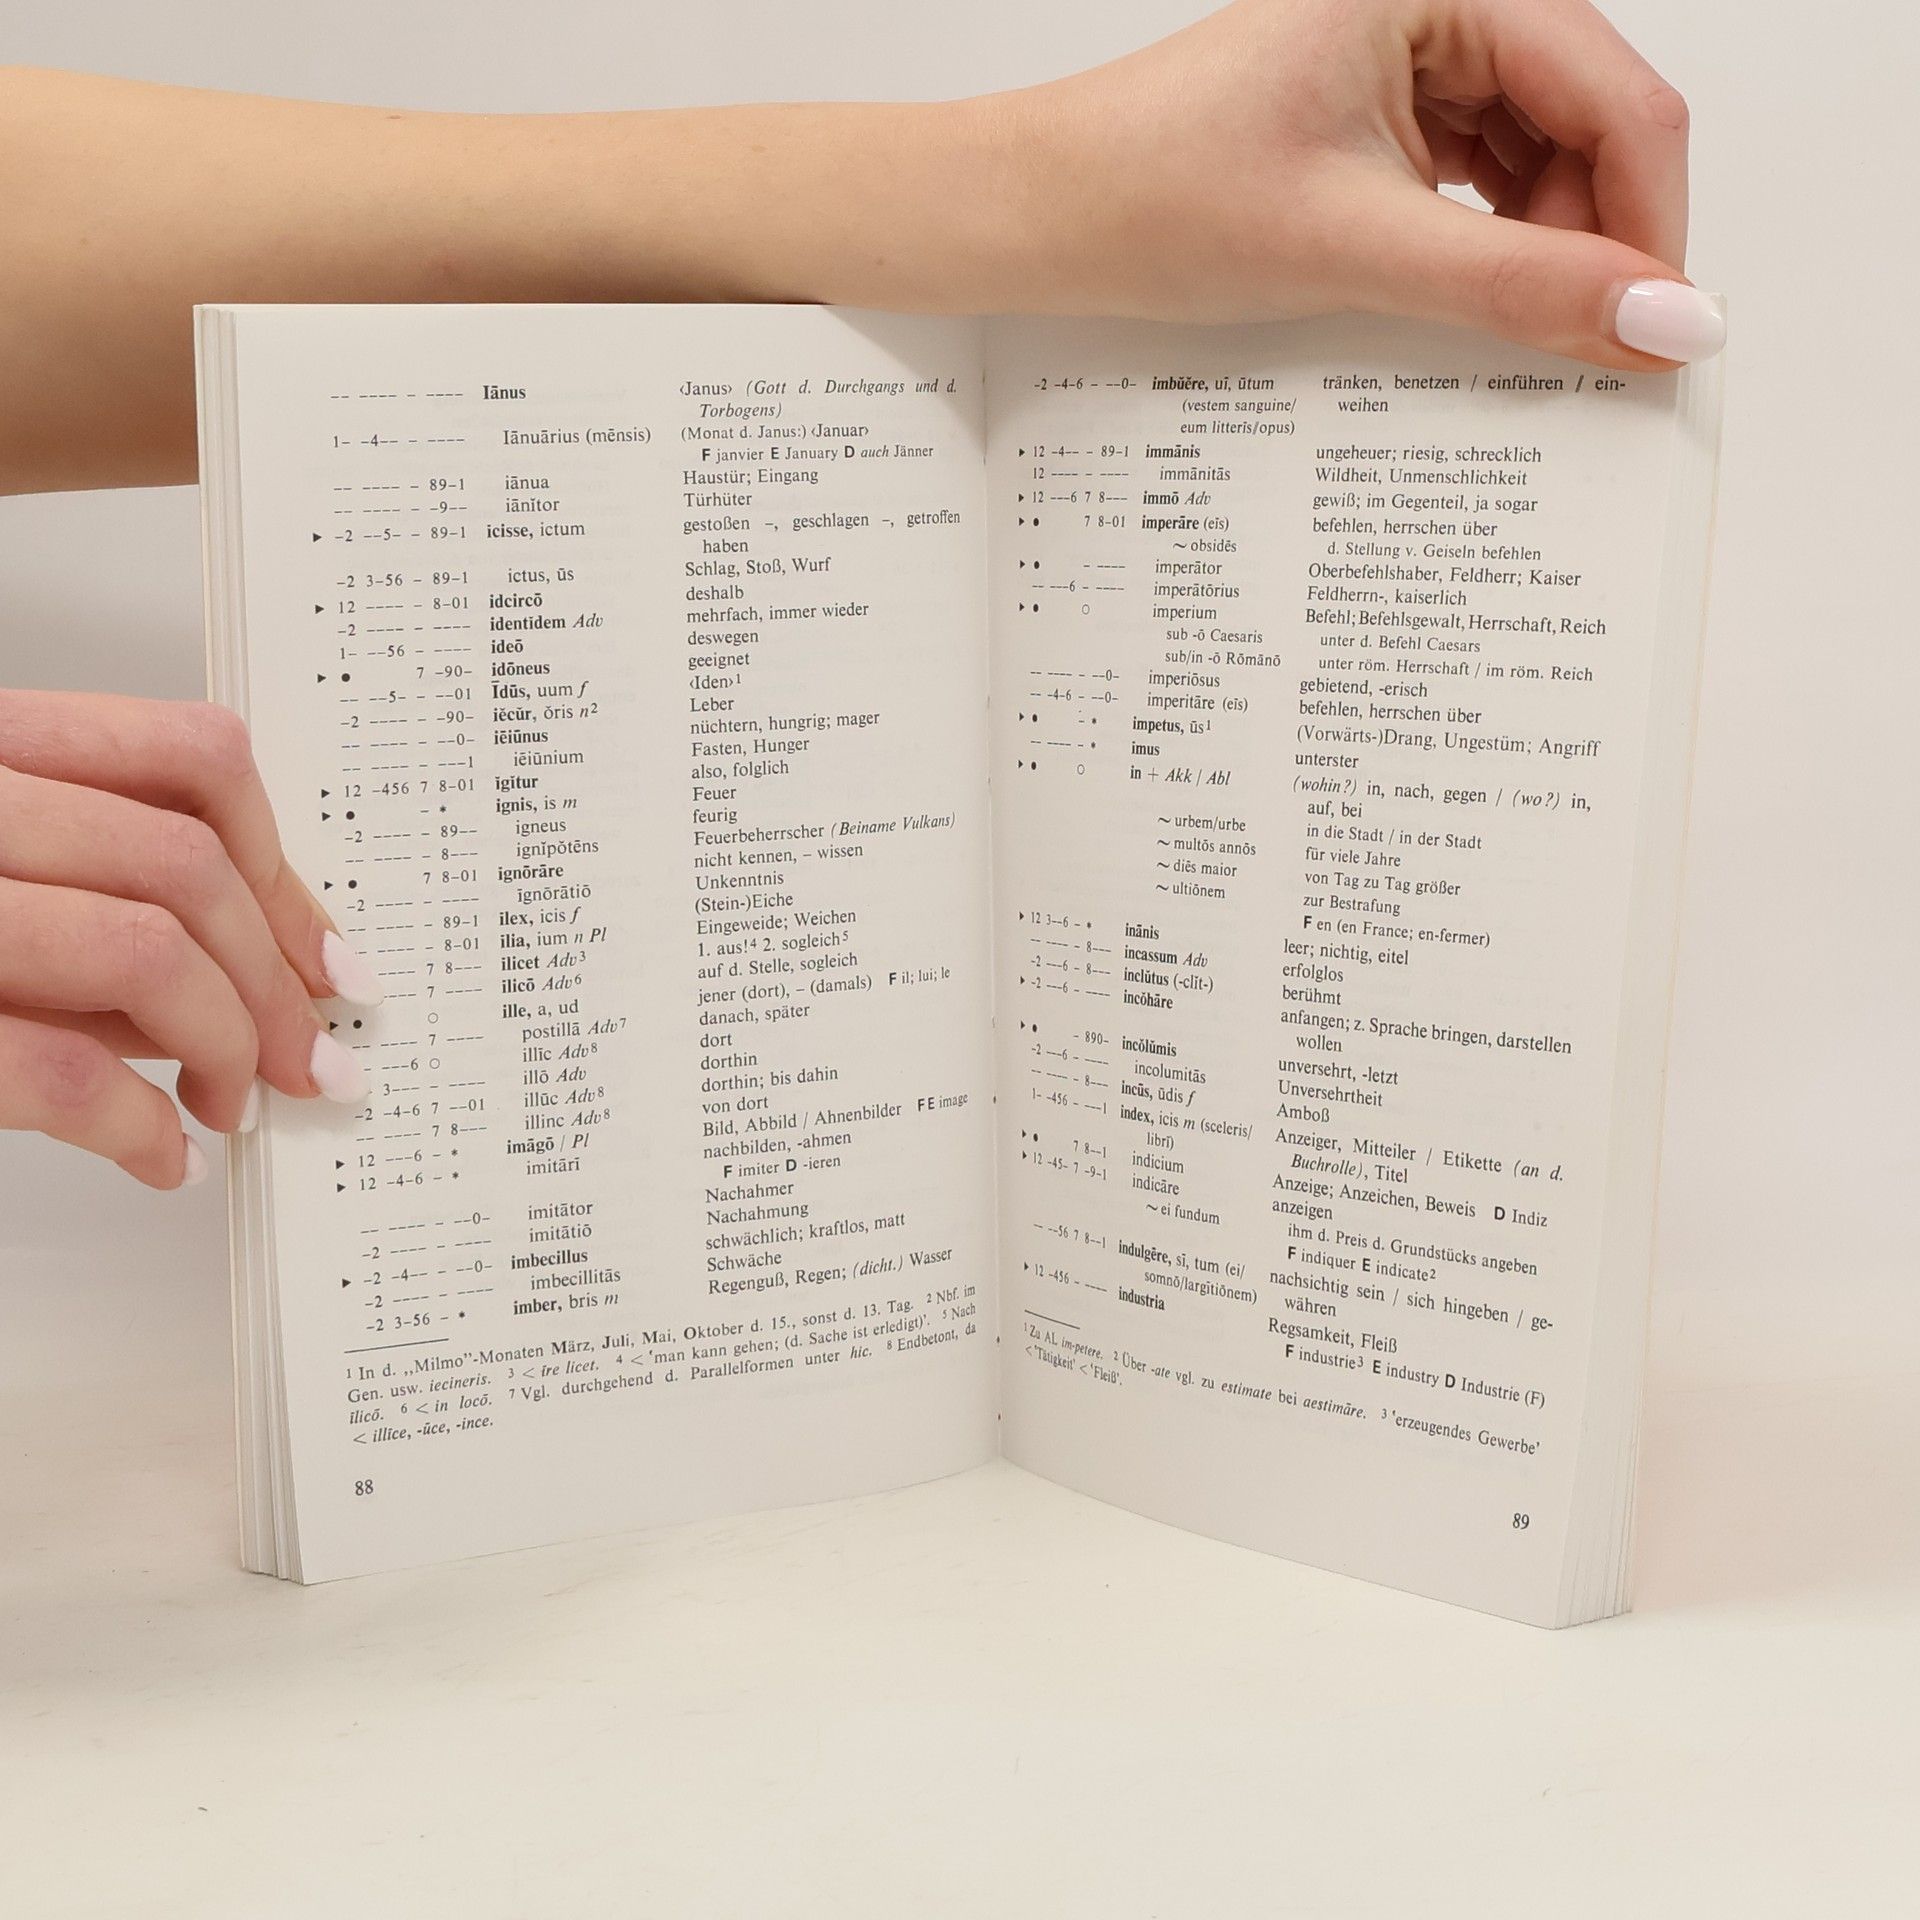 -- ---- - ---- Iānus ‹Janus› (Gott d. Durchgangs und d.
Torbogens)
1- -4-- - ---- Iānuārius (mēnsis) (Monat d. Janus:) ‹Januar›
F janvier E January D auch Jänner
-- ---- - 89-1 iānua Haustür; Eingang
-- ---- - -9-- iānĭtor Türhüter
▶ -2 --5- - 89-1 icisse, ictum gestoßen –, geschlagen –, getroffen
haben
-2 3-56 - 89-1 ictus, ūs Schlag, Stoß, Wurf
▶ 12 ---- - 8-01 idcircō deshalb
-2 ---- - ---- identĭdem Adv mehrfach, immer wieder
1- --56 - ---- ideō deswegen
▶ ● 7 -90- idōneus geeignet
-- --5- - --01 Īdūs, uum f ‹Iden›¹
-2 ---- - -90- iĕcŭr, ŏris n² Leber
-- ---- - --0- iēiūnus nüchtern, hungrig; mager
-- ---- - ---1 iēiūnium Fasten, Hunger
▶ 12 -456 7 8-01 ĭgĭtur also, folglich
▶ ● - * ignis, is m Feuer
-2 ---- - 89-- igneus feurig
-- ---- - 8--- ignĭpŏtēns Feuerbeherrscher (Beiname Vulkans)
▶ ● 7 8-01 ignōrāre nicht kennen, – wissen
-2 ---- - ---- īgnōrātiō Unkenntnis
---- - 89-1 ilex, icis f (Stein-)Eiche
---- - 8-01 ilia, ium n Pl Eingeweide; Weichen
---- 7 8--- ilicet Adv³ 1. aus!⁴ 2. sogleich⁵
---- 7 ---- ilicō Adv⁶ auf d. Stelle, sogleich
▶ ● ○ ille, a, ud jener (dort), – (damals) F il; lui; le
-- ---- 7 ---- postillā Adv⁷ danach, später
- ---6 ○ illīc Adv⁸ dort
- 3--- - ---- illō Adv dorthin
-2 -4-6 7 --01 illūc Adv⁸ dorthin; bis dahin
-- ---- 7 8--- illinc Adv⁸ von dort
▶ 12 ---6 - * imāgō / Pl Bild, Abbild / Ahnenbilder F E image
▶ 12 -4-6 - * imitārī nachbilden, -ahmen
F imiter D -ieren
-- ---- - --0- imitātor Nachahmer
-2 ---- - ---- imitātiō Nachahmung
▶ -2 -4-- - --0- imbecillus schwächlich; kraftlos, matt
-2 ---- - ---- imbecillitās Schwäche
-2 3-56 - * imber, bris m Regenguß, Regen; (dicht.) Wasser
¹ In d. „Milmo”-Monaten März, Juli, Mai, Oktober d. 15., sonst d. 13. Tag. ² Nbf. im
Gen. usw. iecineris. ³ < īre licet. ⁴ < 'man kann gehen; (d. Sache ist erledigt)'. ⁵ Nach
īlicō. ⁶ < in locō. ⁷ Vgl. durchgehend d. Parallelformen unter hic. ⁸ Endbetont, da
< illīce, -ūce, -ince.
88
-2 -4-6 - --0- imbŭĕre, uī, ūtum tränken, benetzen / einführen / ein-
(vestem sanguine/ weihen
eum litterīs/opus)
▶ 12 -4-- - 89-1 immānis ungeheuer; riesig, schrecklich
12 ---- - ---- immānitās Wildheit, Unmenschlichkeit
▶ 12 ---6 7 8--- immō Adv gewiß; im Gegenteil, ja sogar
▶ ● 7 8-01 imperāre (eīs) befehlen, herrschen über
~ obsidēs d. Stellung v. Geiseln befehlen
▶ ● - ---- imperātor Oberbefehlshaber, Feldherr; Kaiser
-- ---6 - ---- imperātōrius Feldherrn-, kaiserlich
▶ ● ○ imperium Befehl; Befehlsgewalt, Herrschaft, Reich
sub -ō Caesaris unter d. Befehl Caesars
sub/in -ō Rōmānō unter röm. Herrschaft / im röm. Reich
-- ---- - --0- imperiōsus gebietend, -erisch
-- -4-6 - --0- imperitāre (eīs) befehlen, herrschen über
▶ ● - * impetus, ūs¹ (Vorwärts-)Drang, Ungestüm; Angriff
-- ---- - * imus unterster
▶ ● ○ in + Akk / Abl (wohin?) in, nach, gegen / (wo?) in,
auf, bei
~ urbem/urbe in die Stadt / in der Stadt
~ multōs annōs für viele Jahre
~ diēs maior von Tag zu Tag größer
~ ultiōnem zur Bestrafung
F en (en France; en-fermer)
▶ 12 3--6 - * inānis leer; nichtig, eitel
-- ---- - 8--- incassum Adv erfolglos
-2 ---6 - 8--- inclŭtus (-clĭt-) berühmt
▶ -2 ---6 - ---- incŏhāre anfangen; z. Sprache bringen, darstellen
wollen
▶ ● - 890- incŏlŭmis unversehrt, -letzt
-2 ---6 - ---- incolumitās Unversehrtheit
-- ---- - 8--- incūs, ūdis f Amboß
1- -456 - ---1 index, icis m (sceleris/ Anzeiger, Mitteiler / Etikette (an d.
librī) Buchrolle), Titel
▶ ● 7 8--1 indicium Anzeige; Anzeichen, Beweis D Indiz
▶ 12 -45- 7 -9-1 indicāre anzeigen
~ ei fundum ihm d. Preis d. Grundstücks angeben
F indiquer E indicate²
-- --56 7 8--1 indulgēre, sī, tum (ei/ nachsichtig sein / sich hingeben / ge-
somnō/largītiōnem) währen
▶ 12 -456 - ---- industria Regsamkeit, Fleiß
F industrie³ E industry D Industrie (F)
¹ Zu AL im-petere. ² Über -ate vgl. zu estimate bei aestimāre. ³ 'erzeugendes Gewerbe'
< 'Tätigkeit' < 'Fleiß'.
89